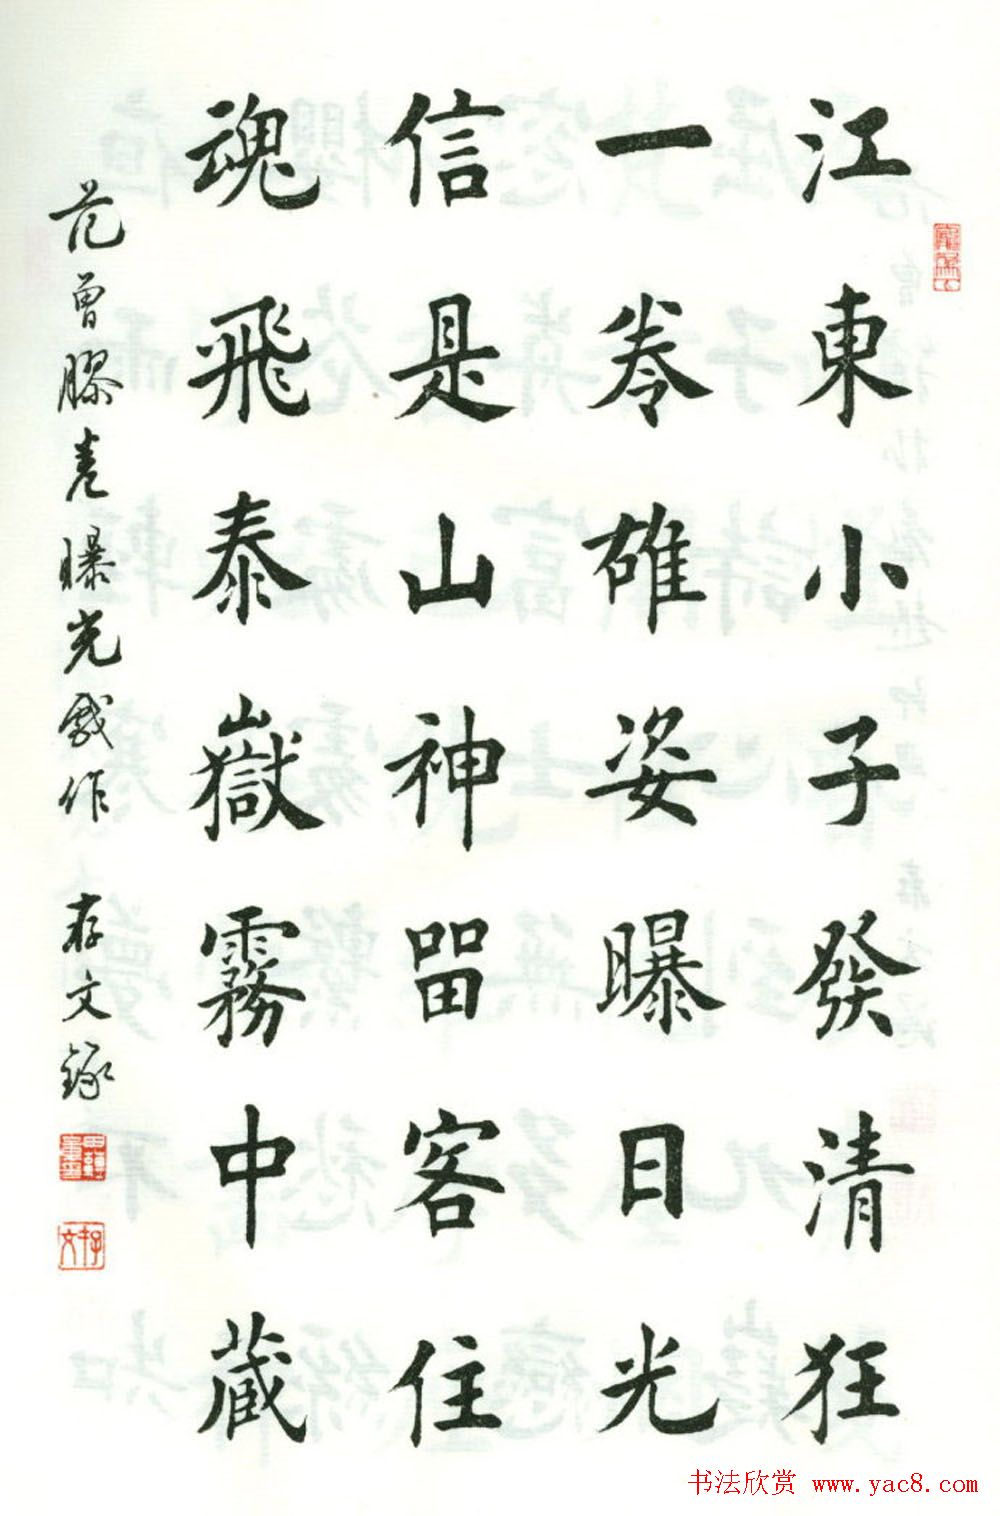 江東小子發清狂
一卷雄姿曝日光
信是山神留客住
魂飛泰嶽霧中藏
范曾膠卷曝光戲作 存文錄
存文
书法欣赏 www.yac8.com